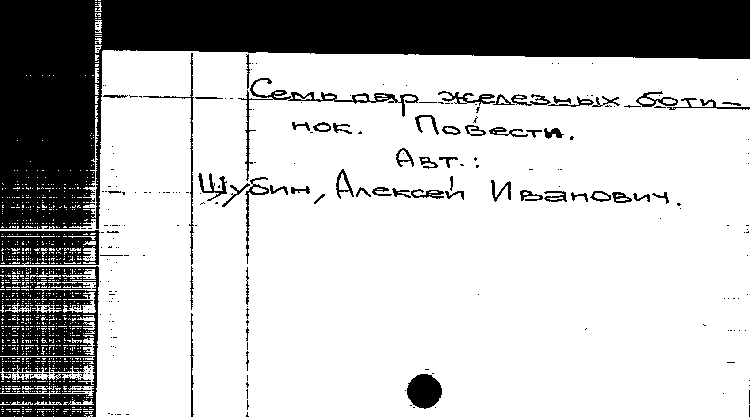 Семь пар железных боти-
нок. Повести.
Авт.:
Шубин, Алексей Иванович.